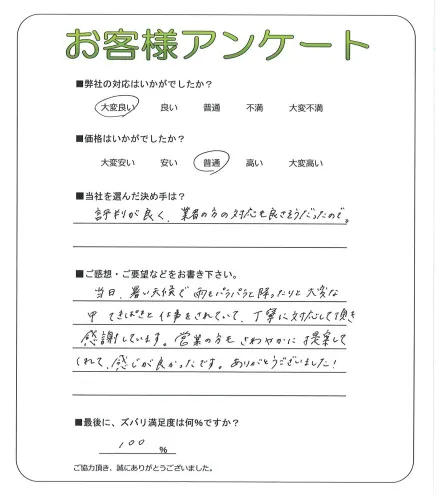 お客様アンケート
■弊社の対応はいかがでしたか？
大変良い 良い 普通 不満 大変不満
■価格はいかがでしたか？
大変安い 安い 普通 高い 大変高い
■当社を選んだ決め手は？
評判が良く、業者の方の対応も良さそうだったので。
■ご感想・ご要望などをお書き下さい。
当日、暑い天候で雨もパラパラと降ったりと大変な
中 てきぱきと仕事をされていて、丁寧に対応して頂き
感謝しています。営業の方もさわやかに提案して
くれて、感じが良かったです。ありがとうございました!
■最後に、ズバリ満足度は何％ですか？
100 ％
ご協力頂き、誠にありがとうございました。